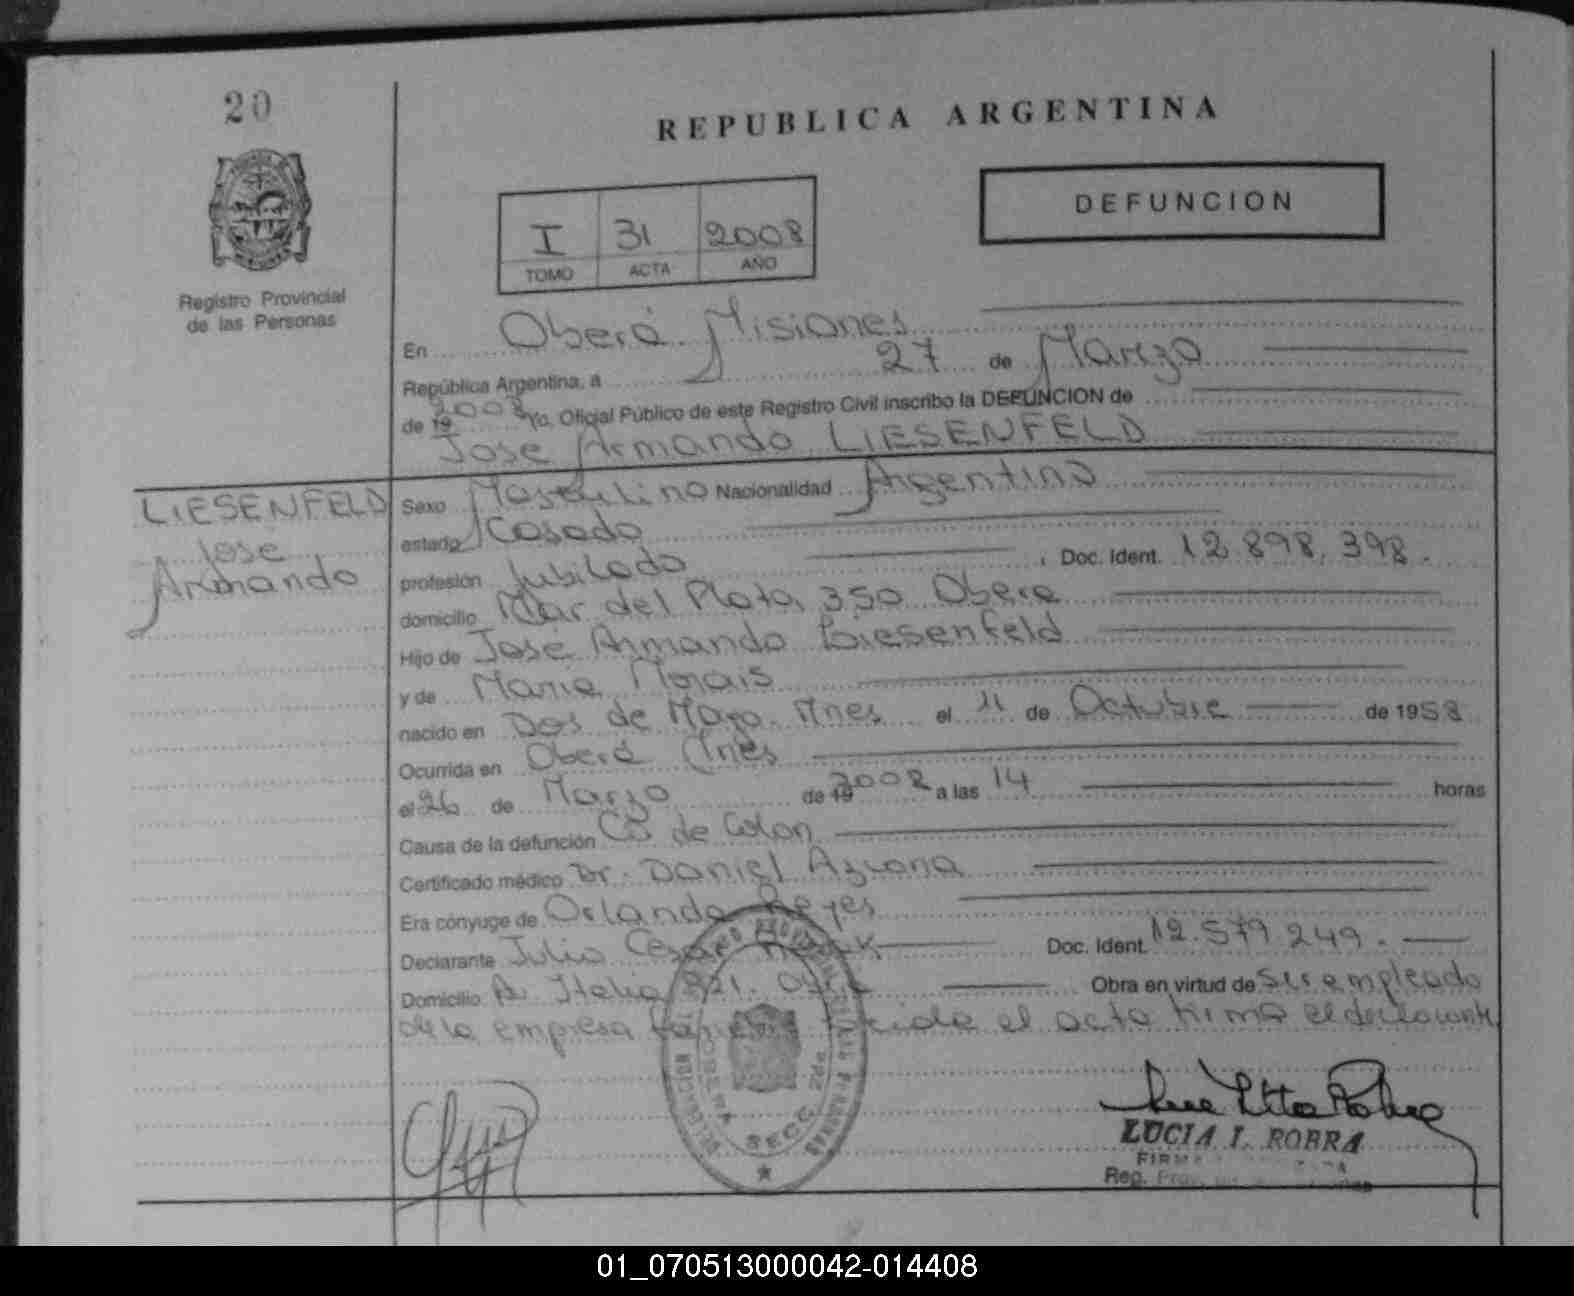 20
REPUBLICA ARGENTINA
DEFUNCION
I 31 2008
TOMO ACTA AÑO
Registro Provincial
de las Personas
En Oberá Misiones
República Argentina, a 27 de Marzo
de 19 2008 Yo, Oficial Público de este Registro Civil inscribo la DEFUNCION de
Jose Armando LIESENFELD
LIESENFELD
Jose
Armando
Sexo Masculino Nacionalidad Argentino
estado Casado
profesión Jubilado Doc. Ident. 12.898.398.
domicilio Mar del Plata 350 Obera
Hijo de José Armando Liesenfeld
y de Maria Morais
nacido en Dos de Mayo. Mnes el 11 de Octubre de 1958
Ocurrida en Oberá Mnes
el 26 de Marzo de 19 2008 a las 14 horas
Causa de la defunción Ca de Colon
Certificado médico Dr. Daniel Azcona
Era cónyuge de Orlanda Reyes
Declarante Julio Cesar Doc. Ident. 12.579.249.
Domicilio Av Italia 821. Obra en virtud de Ser empleado
de la empresa el acta firma el declarante
SECC. 2da.
LUCIA I. ROBRA
Reg. Prov.
01_070513000042-014408